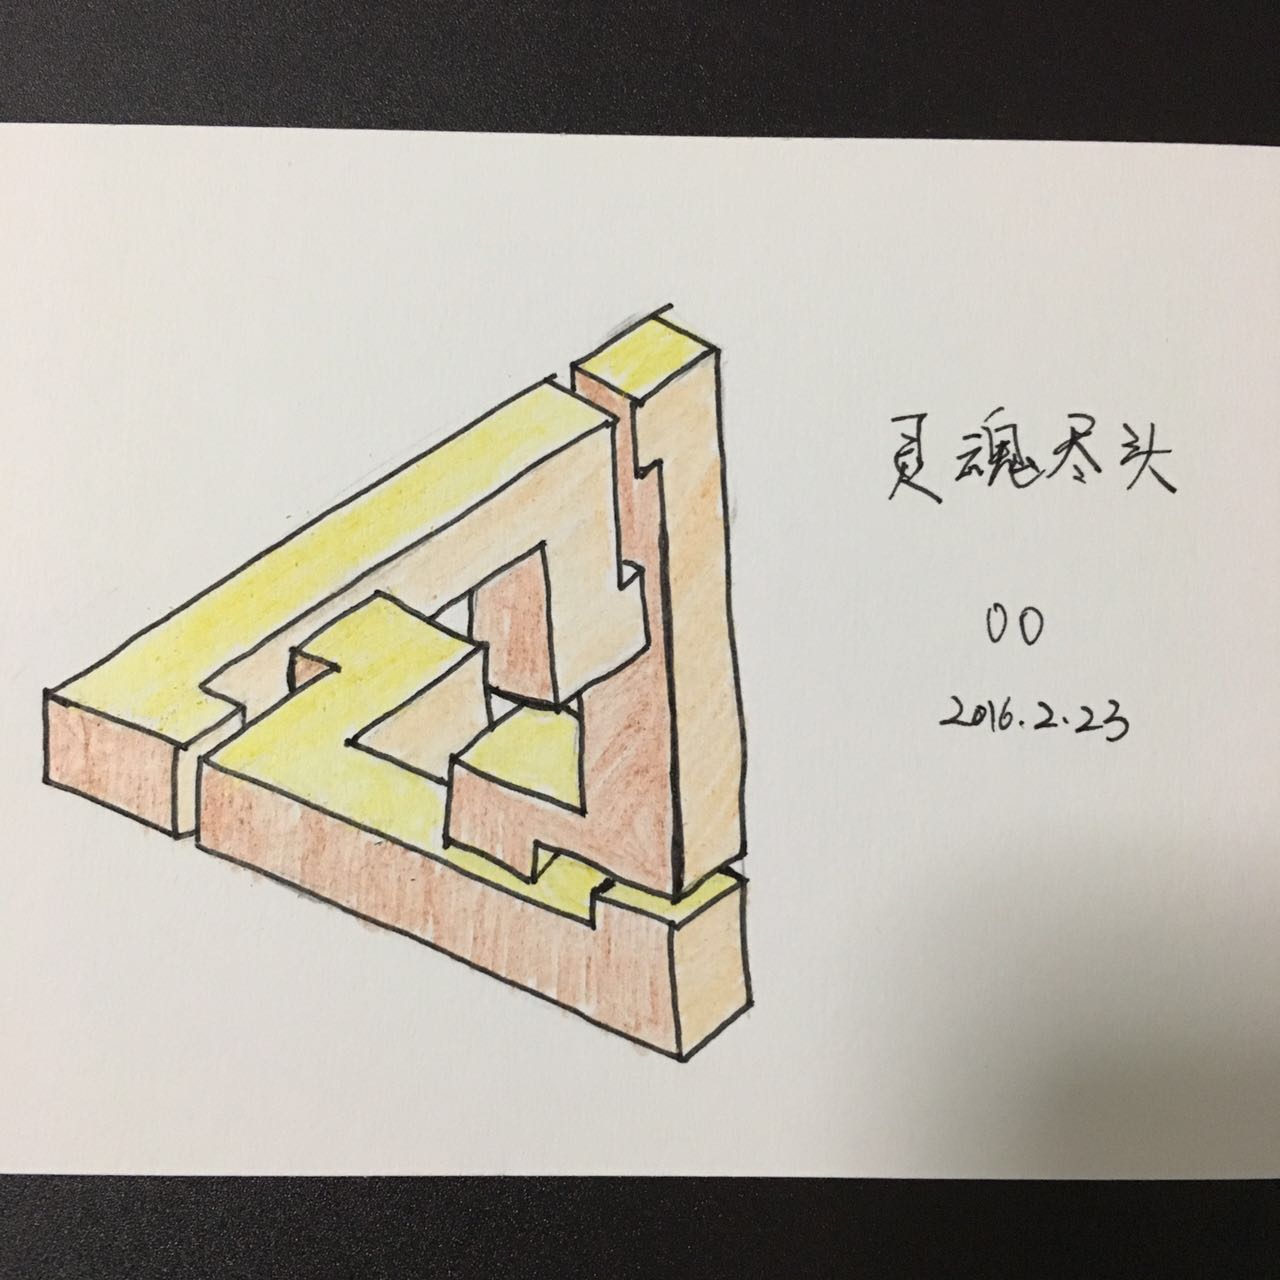 灵魂尽头
00
2016.2.23